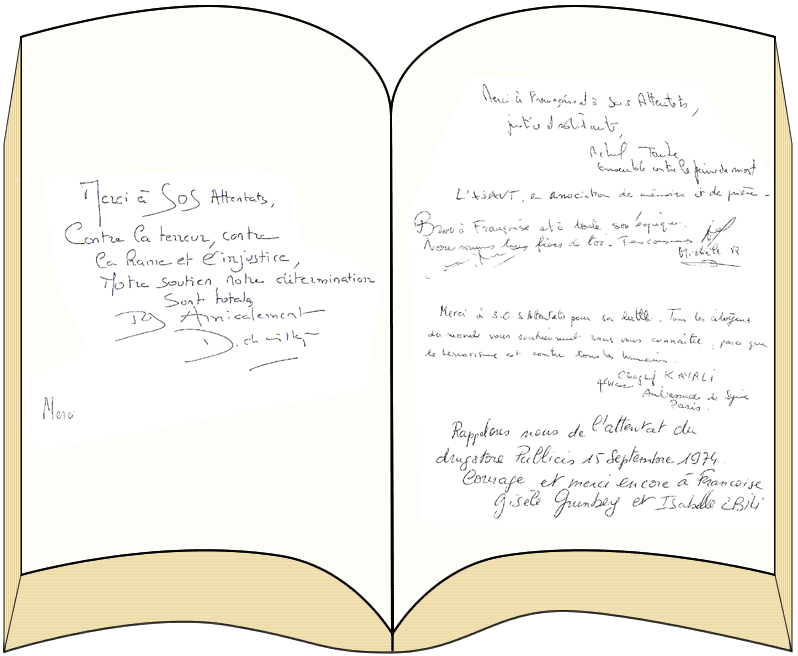 Merci à SOS Attentats,
Contre la terreur, contre
la Haine et l'injustice,
Notre soutien, notre détermination
Sont totals
Bien Amicalement
Merci
Merci à Françoise et à S.O.S Attentats,
justice et solidarité,
Ensemble contre la peine de mort
L'ASAVT, en association de mémoire et de prière -
Bravo à Françoise et à toute son équipe.
Nous sommes tous fières de toi. Ton courage
Michèle R
Merci à S.O.S Attentats pour sa lutte. Tous les citoyens
du monde vous soutiennent sans vous connaître, parce que
le terrorisme est contre tous les humains.
KAYALI
Ambassade de Syrie
Paris.
Rappelons nous de l'attentat du
drugstore Publicis 15 Septembre 1974
Courage et merci encore à Francoise
Gisèle et Isabelle ZBILI